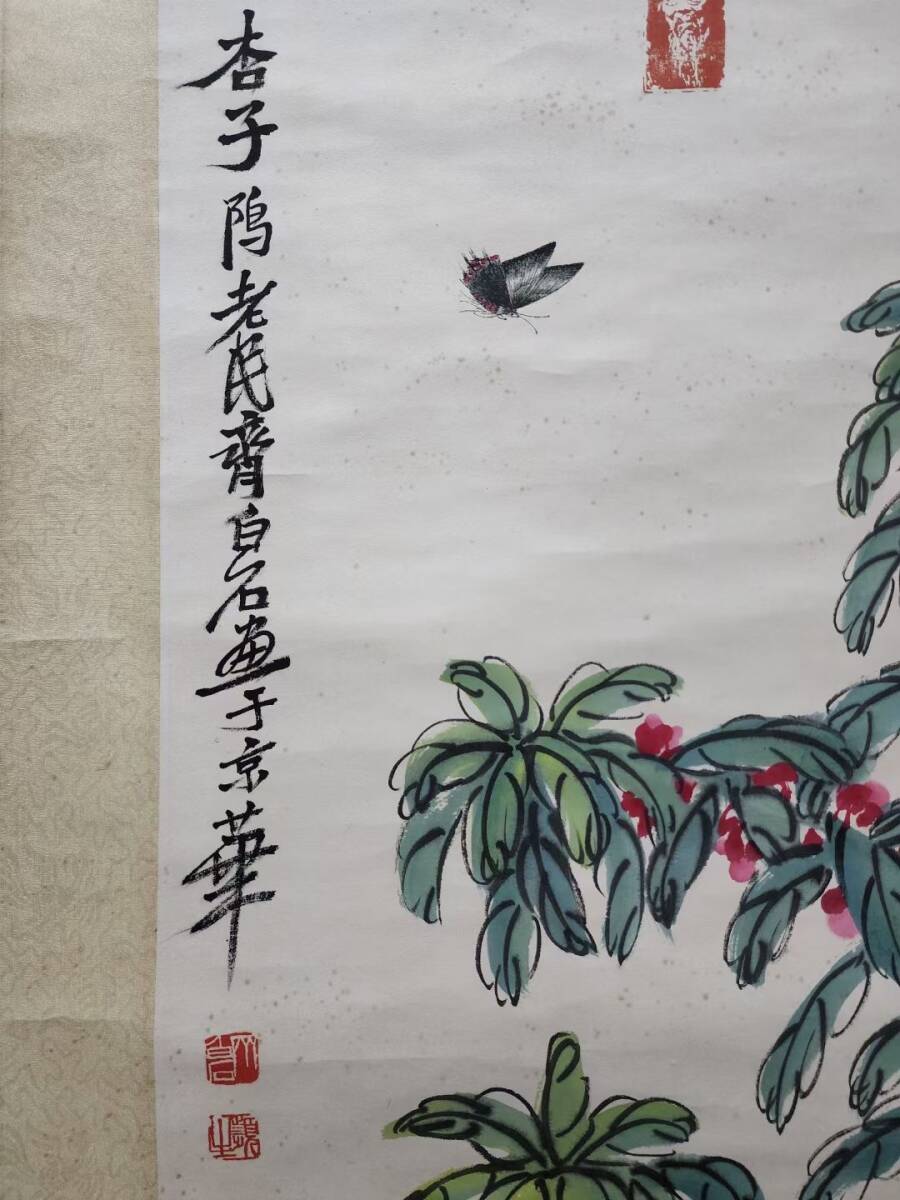 杏子隖老民齊白石畫于京華